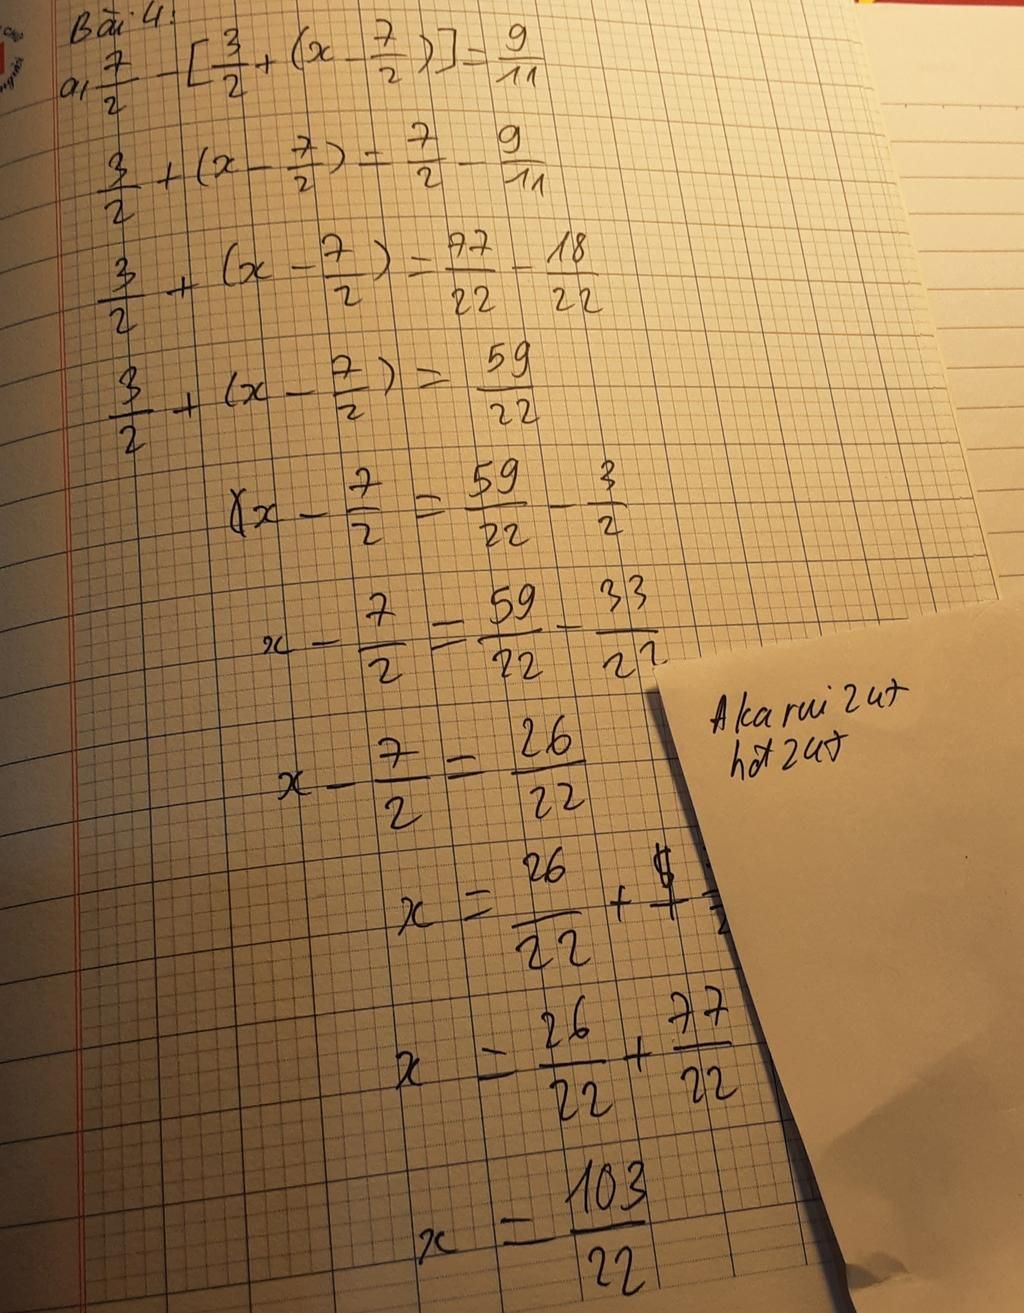 Bài 4:
a, 7/2 - [3/2 + (x - 7/2)] = 9/11
3/2 + (x - 7/2) = 7/2 - 9/11
3/2 + (x - 7/2) = 77/22 - 18/22
3/2 + (x - 7/2) = 59/22
x - 7/2 = 59/22 - 3/2
x - 7/2 = 59/22 - 33/22
x - 7/2 = 26/22
x = 26/22 +
x = 26/22 + 77/22
x = 103/22
Akarui zut
hot zut